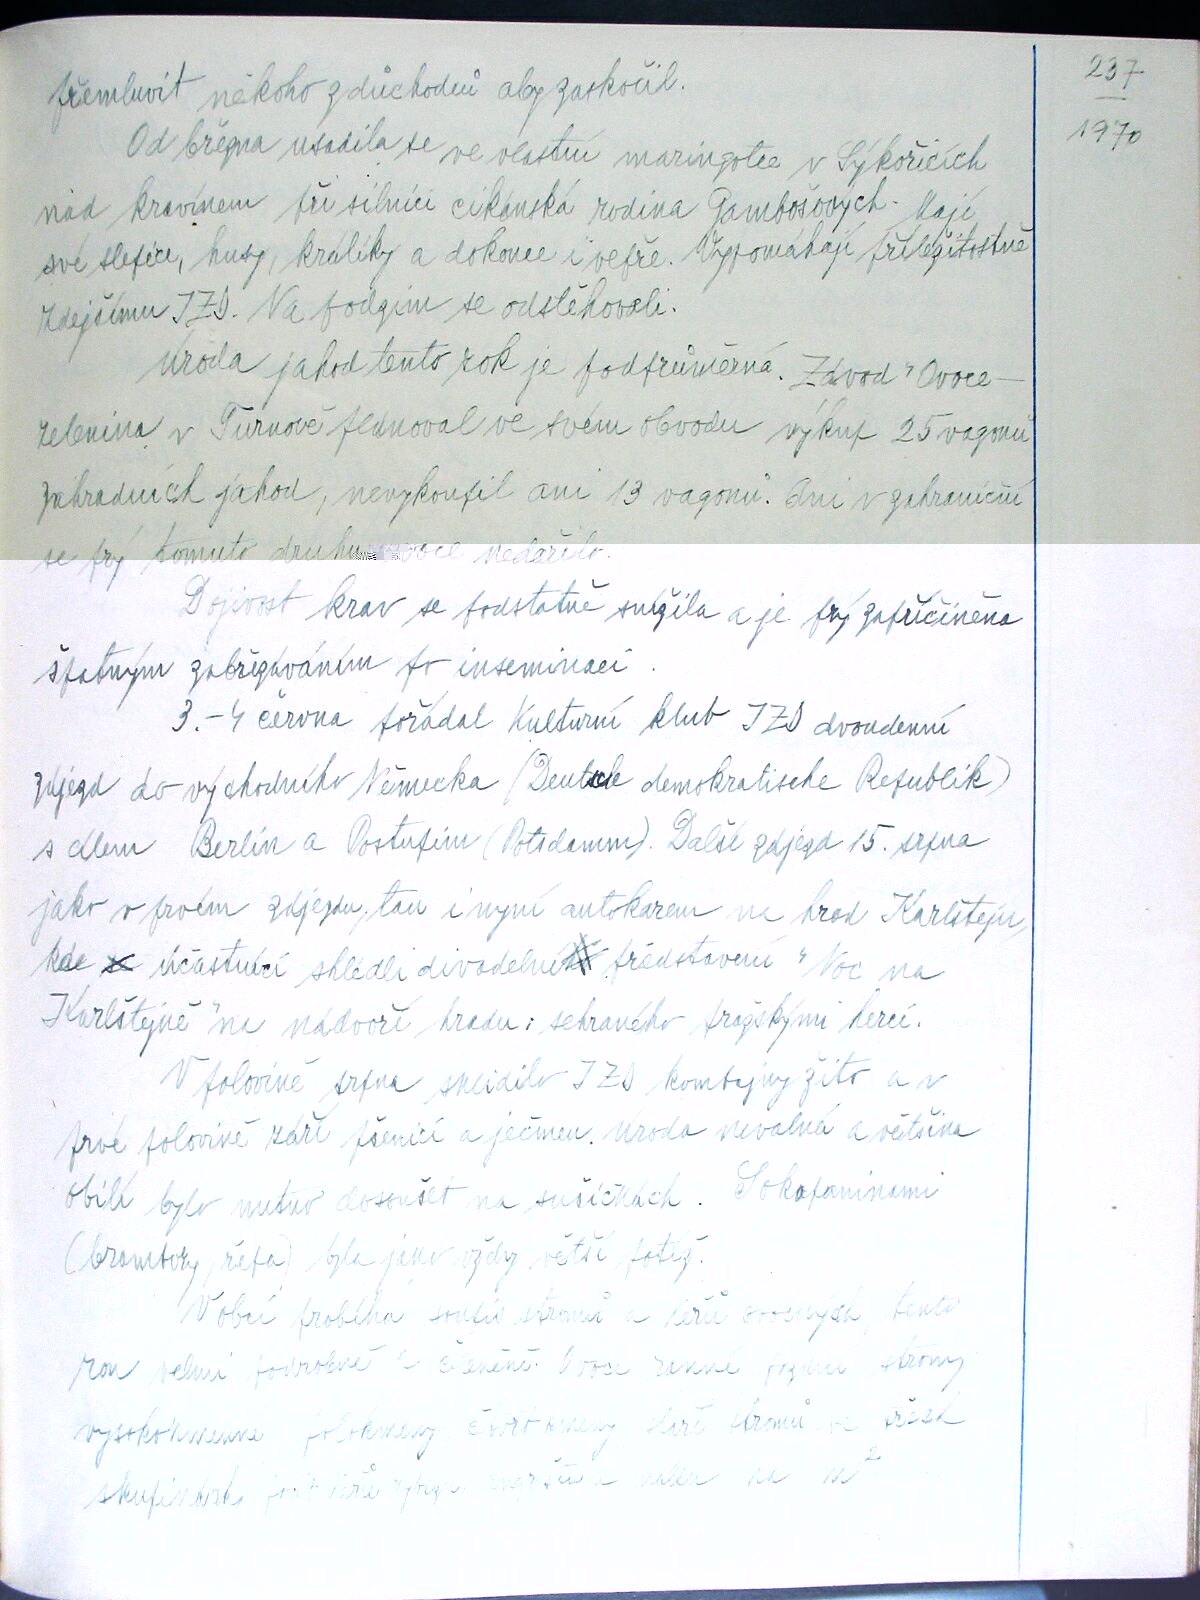 237
1970
přemluvit někoho z důchodců aby zaskočil.
Od března usadila se ve vlastní maringotce v Sýkořicích
nad kravínem při silnici cikánská rodina Gambošových. Mají
své slepice, husy, králíky a dokonce i vepře. Vypomáhají příležitostně
zdejšímu JZD. Na podzim se odstěhovali.
Úroda jahod tento rok je podprůměrná. Závod "Ovoce-
zelenina v Turnově plánoval ve svém obvodu výkup 25 vagonů
zahradních jahod, nevykoupil ani 13 vagonů. Ani v zahraničí
se prý tomuto druhu ovoce nedařilo.
Dojivost krav se podstatně snížila a je prý zapříčiněna
špatným zabřezáváním po inseminaci.
3.-4 června pořádal Kulturní klub JZD dvoudenní
zájezd do východního Německa (Deutsche demokratische Republik)
s cílem Berlín a Postupim (Potsdamm). Další zájezd 15. srpna
jako v prvém zájezdu, tak i nyní autokarem na hrad Karlštejn,
kde účastníci shlédli divadelní představení "Noc na
Karlštejně" na nádvoří hradu, sehraného pražskými herci.
V polovině srpna sklidilo JZD kombajny žito a v
prvé polovině září pšenici a ječmen. Úroda nevalná a většina
obilí bylo nutno dosoušet na sušičkách. S okopaninami
(brambory, řepa) byla jako vždy větší potíž.
V obci probíhá soupis stromů a keřů ovocných, tento
rok velmi podrobně a členěně. Ovoce ranné pozdní stromy
vysokokmenné polokmeny čtvrtkmeny, stáří stromů ve třech
skupinách, na m²